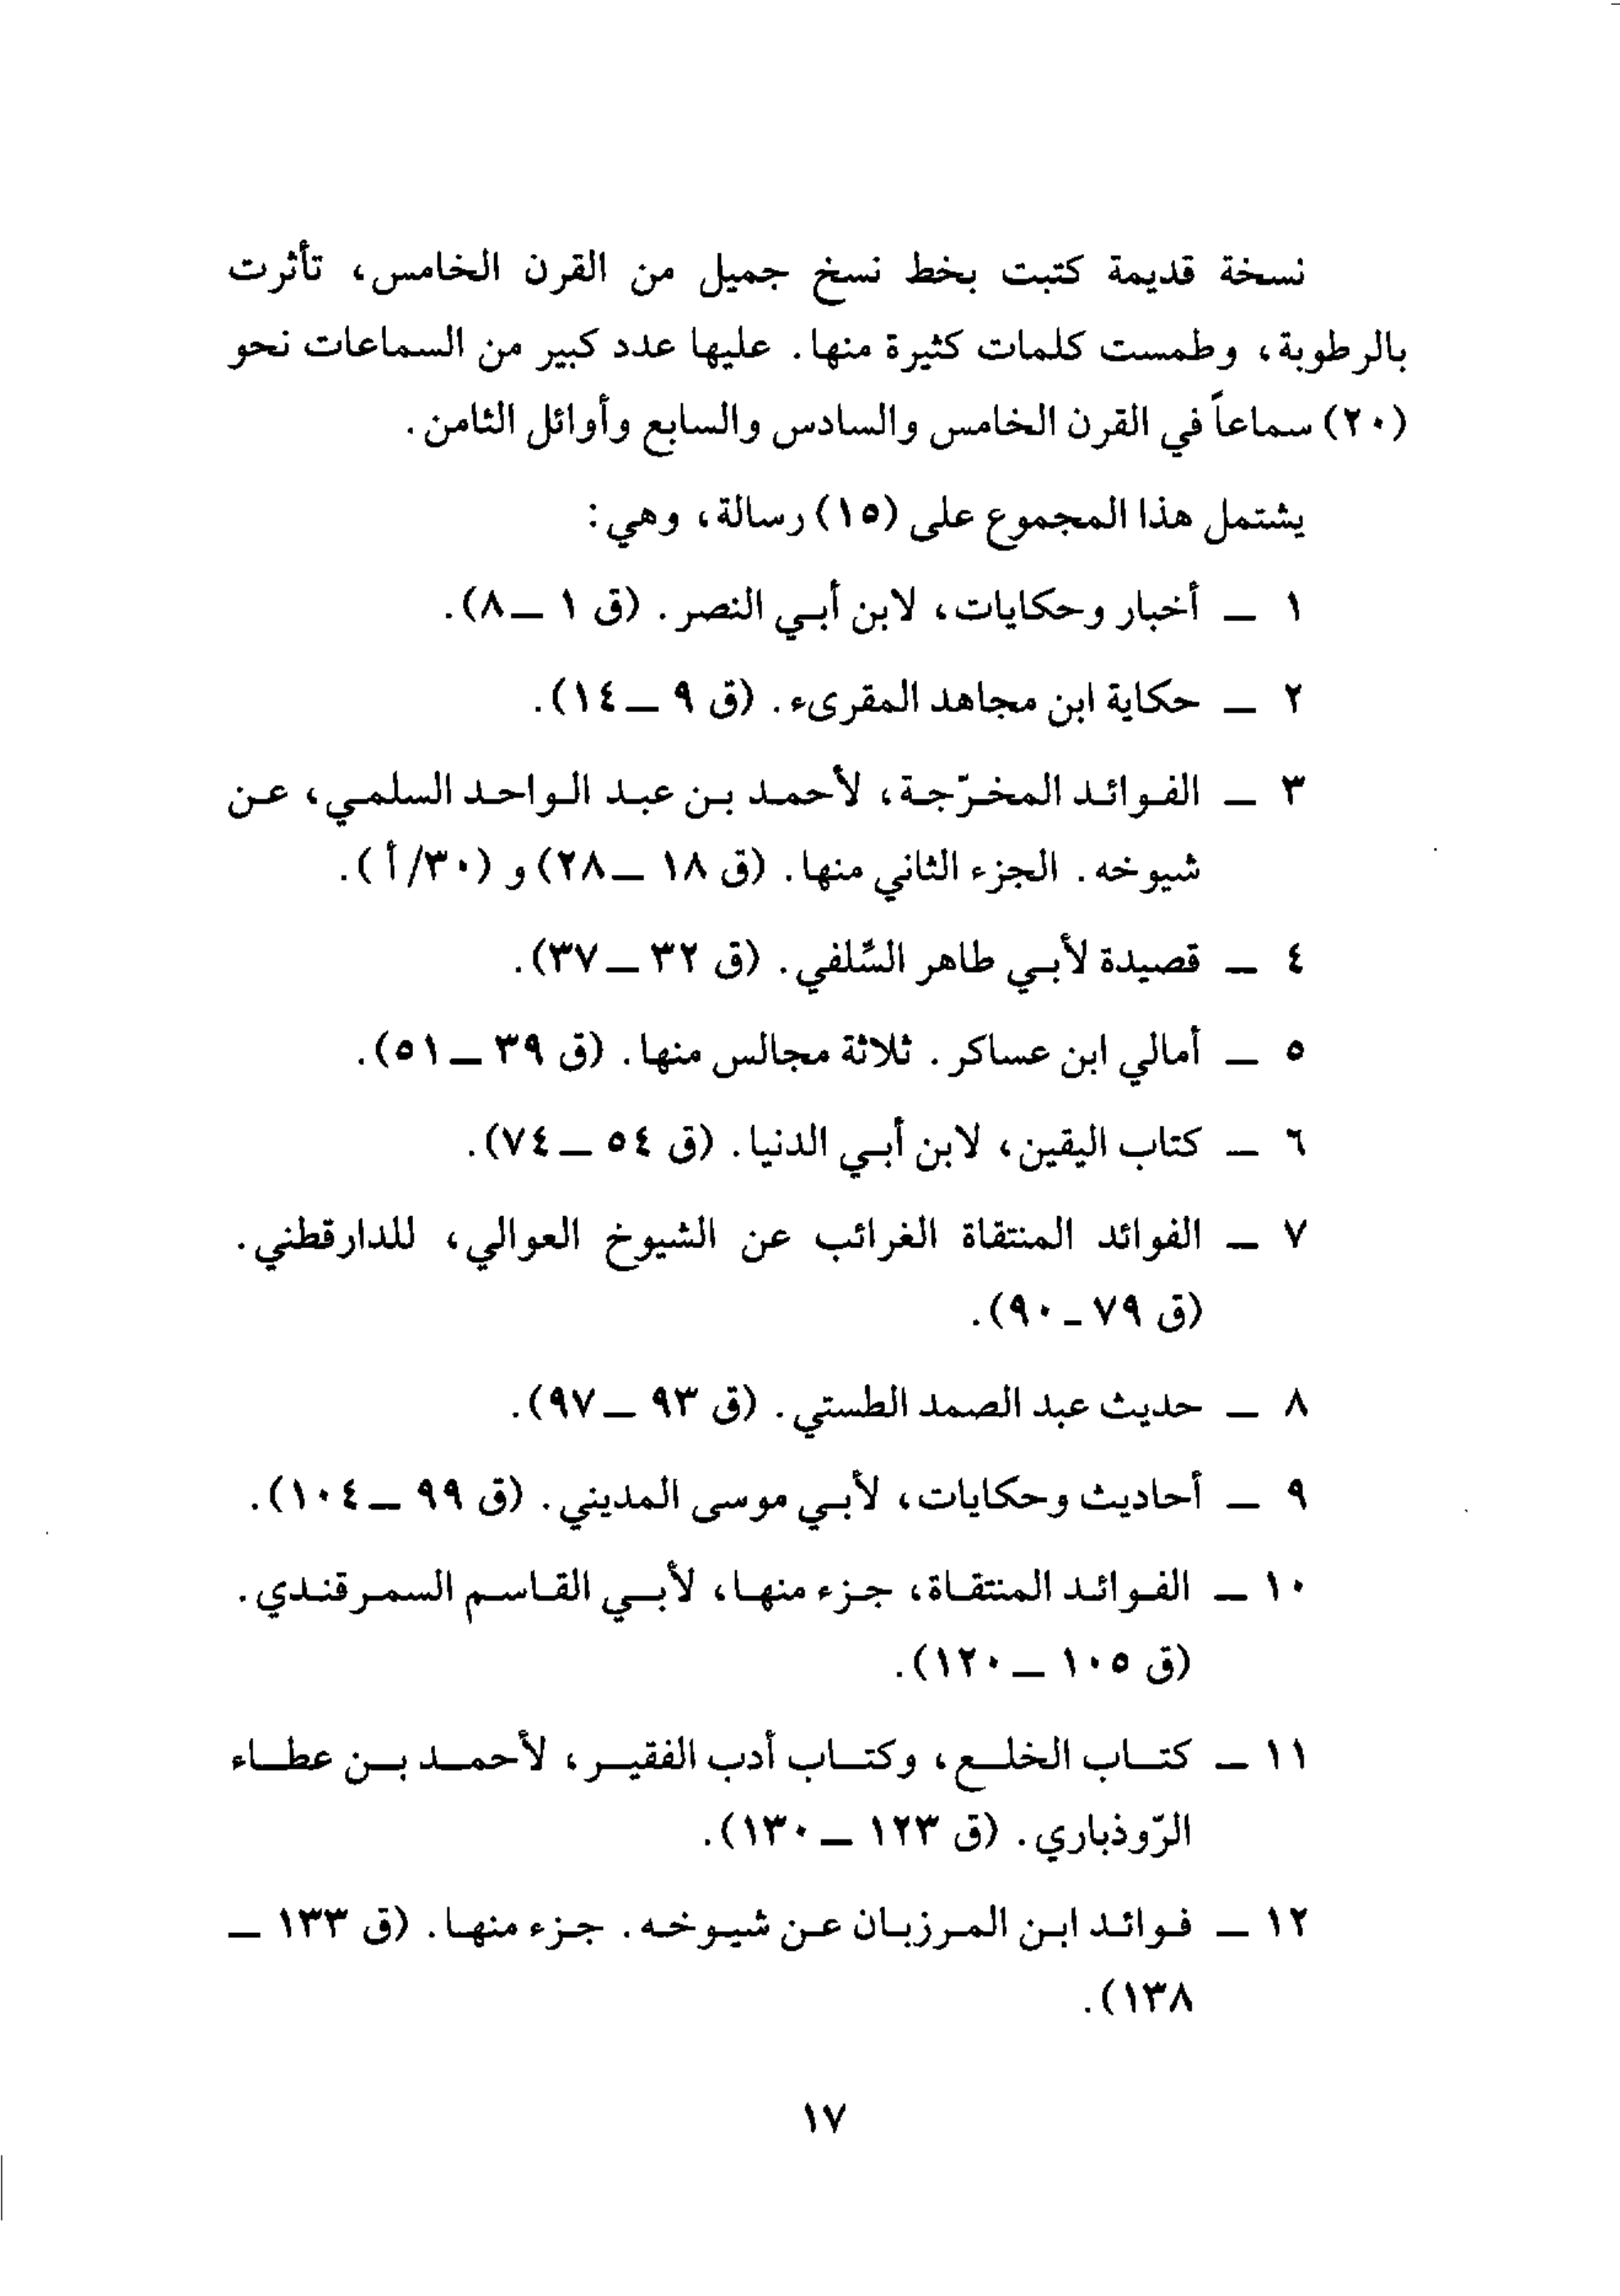 نسخة قديمة كتبت بخط نسخ جميل من القرن الخامس، تأثرت
بالرطوبة، وطمست كلمات كثيرة منها. عليها عدد كبير من السماعات نحو
(٢٠) سماعاً في القرن الخامس والسادس والسابع وأوائل الثامن.
يشتمل هذا المجموع على (١٥) رسالة، وهي:
١ – أخبار وحكايات، لابن أبي النصر. (ق ١ – ٨).
٢ – حكاية ابن مجاهد المقرىء. (ق ٩ – ١٤).
٣ – الفوائد المخرّجة، لأحمد بن عبد الواحد السلمي، عن
شيوخه. الجزء الثاني منها. (ق ١٨ – ٢٨) و (٣٠/ أ).
٤ – قصيدة لأبي طاهر السِّلفي. (ق ٣٢ – ٣٧).
٥ – أمالي ابن عساكر. ثلاثة مجالس منها. (ق ٣٩ – ٥١).
٦ – كتاب اليقين، لابن أبي الدنيا. (ق ٥٤ – ٧٤).
٧ – الفوائد المنتقاة الغرائب عن الشيوخ العوالي، للدارقطني.
(ق ٧٩ - ٩٠).
٨ – حديث عبد الصمد الطستي. (ق ٩٣ – ٩٧).
٩ – أحاديث وحكايات، لأبي موسى المديني. (ق ٩٩ – ١٠٤).
١٠ – الفوائد المنتقاة، جزء منها، لأبي القاسم السمرقندي.
(ق ١٠٥ – ١٢٠).
١١ – كتاب الخلع، وكتاب أدب الفقير، لأحمد بن عطاء
الرّوذباري. (ق ١٢٣ – ١٣٠).
١٢ – فوائد ابن المرزبان عن شيوخه. جزء منها. (ق ١٣٣ –
١٣٨).
١٧